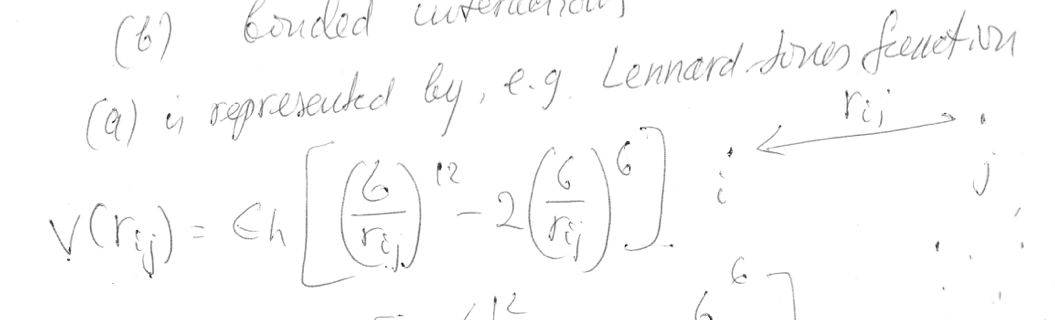 (b) bonded interactions
(a) is represented by, e.g. Lennard-Jones function
V(rij) = ϵh [ (σ/rij)^12 - 2 (σ/rij)^6 ]
rij
i
j
12 6 6 ]